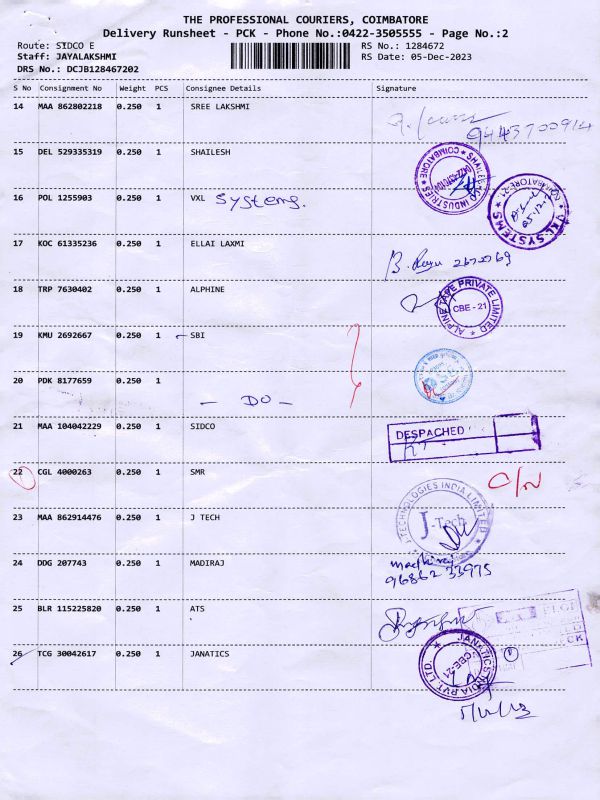 THE PROFESSIONAL COURIERS, COIMBATORE
Delivery Runsheet - PCK - Phone No.:0422-3505555 - Page No.:2
Route: SIDCO E RS No.: 1284672
Staff: JAYALAKSHMI RS Date: 05-Dec-2023
DRS No.: DCJB128467202
S No Consignment No Weight PCS Consignee Details Signature
14 MAA 862802218 0.250 1 SREE LAKSHMI
9443700914
15 DEL 529335319 0.250 1 SHAILESH
COIMBATORE
INDUSTRIES
16 POL 1255903 0.250 1 VXL Systems.
VXL SYSTEMS
17 KOC 61335236 0.250 1 ELLAI LAXMI
18 TRP 7630402 0.250 1 ALPHINE
ALPINE TAPE PRIVATE LIMITED
CBE - 21
19 KMU 2692667 0.250 1 SBI
20 PDK 8177659 0.250 1
- DO -
21 MAA 104042229 0.250 1 SIDCO
DESPACHED
22 CGL 4000263 0.250 1 SMR
23 MAA 862914476 0.250 1 J TECH
J-TECHNOLOGIES INDIA LIMITED
J-Tech
24 DDG 207743 0.250 1 MADIRAJ
96862 33975
25 BLR 115225820 0.250 1 ATS
26 TCG 30042617 0.250 1 JANATICS
JANATICS INDIA PVT. LTD.
CBE-21
5/12/23